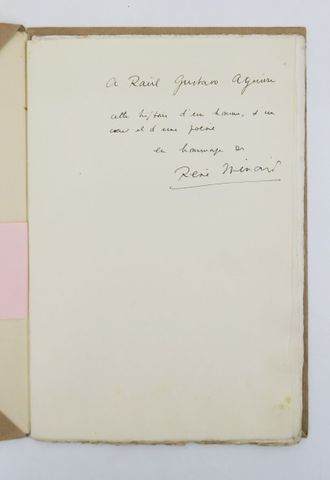 A Raúl Gustavo Aguirre
cette histoire d'un homme, d'un
cœur et d'une poésie
en hommage de
René Ménard